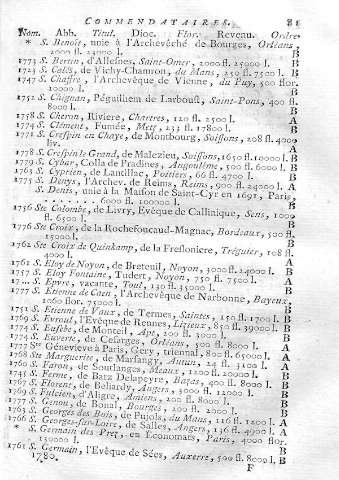 COMMENDATAIRES. 81
Nom. Abb. Titul. Dioc. Flor. Reveau. Ordre
* S. Benoît, unie à l'Archevêché de Bourges, Orléans,
2000 fl. 23000 l. B
1773 S. Bertin, d'Allesnes. Saint-Omer, 2000 fl. 25000 l. B
1723 S. Calès, de Vichy-Chamron, du Mans, 250 fl. 7500 l. B
1747 S. Chaffre, l'Archevêque de Vienne, du Puy, 500 flor.
10000 l. B
1751 S. Chignan, Péguilhem de Larboust, Saint-Pons, 400 fl.
8000 l. B
1758 S. Cheron, Riviere, Chartres, 120 fl. 2500 l. A
1774 S. Clément, Fumée, Metz, 233 fl. 17800 l. B
1771 S. Crespin en Chaye, de Montbourg, Soissons, 208 fl. 400
liv. A
1778 S. Crespin le Grand, de Malezieu, Soissons, 1650 fl. 10000 l. B
1779 S. Cybar, Colla de Pradines, Angoulême, 500 fl. 6000 l. B
1763 S. Cyprien, de Lantillac, Poitiers, 66 fl. 4700 l. B
1775 S. Denys, l'Archev. de Reims, Reims, 900 fl. 24000 l. A
S. Denis, unie à la Maison de Saint-Cyr en 1691, Paris,
. . . . . . . 6000 fl. 100000 l. B
1756 Ste Colombe, de Livry, Evêque de Callinique, Sens, 1000
fl. 6500 l. B
1776 Ste Croix, de la Rochefoucaud-Magnac, Bordeaux, 500
fl. 15000 l. B
1762 Ste Croix de Quinkamp, de la Fresloniere, Tréguier, 108 fl.
4000 l. A
1761 S. Eloy de Noyon, de Breteuil, Noyon, 3000 fl. 24000 l. B
1757 S. Eloy Fontaine, Tudert, Noyon, 750 fl. 7500 l. A
17... S. Epvre, vacante, Toul, 130 fl. 35000 l. B
1777 S. Etienne de Caen, l'Archevêque de Narbonne, Bayeux,
1060 flor. 75000 l. B
1751 S. Etienne de Vaux, de Termes, Saintes, 150 fl. 1700 l. B
1769 S. Evroul, l'Evêque de Rennes, Lizieux, 850 fl. 39000 l. B
1774 S. Eusebe, de Monteil, Apt, 200 fl. 3000 l. B
1774 S. Euverte, de Cesarges, Orléans, 500 fl. 8000 l. A
1777 Ste Génevieve à Paris, Gery, triennal, 800 fl. 65000 l. A
1768 Ste Marguerite, de Marsangy, Autun, 24 fl. 3100 l. A
1760 S. Faron, de Soulanges, Meaux, 1200 fl. 20000 l. B
1745 S. Ferme, de Batz Delapeyre, Bazas, 400 fl. 8000 l. B
1768 S. Florent, de Beliardy, Angers, 3000 fl. 12000 l. B
1769 S. Fulcien, d'Aligre, Amiens, 800 fl. 8000 l. B
1777 S. Genou, de Bonal, Bourges, 200 fl. 2000 l. B
1763 S. Georges des Bois, de Pujols, du Mans, 116 fl. 1200 l. A
1766 S. Georges-sur-Loire, de Salles, Angers, 136 fl. 4900 l. A
* S. Germain des Prez, en Économats, Paris, 4000 flor.
130000 l. B
1761 S. Germain, l'Evêque de Sées, Auxerre, 500 fl. 8000 l. B
1780. F